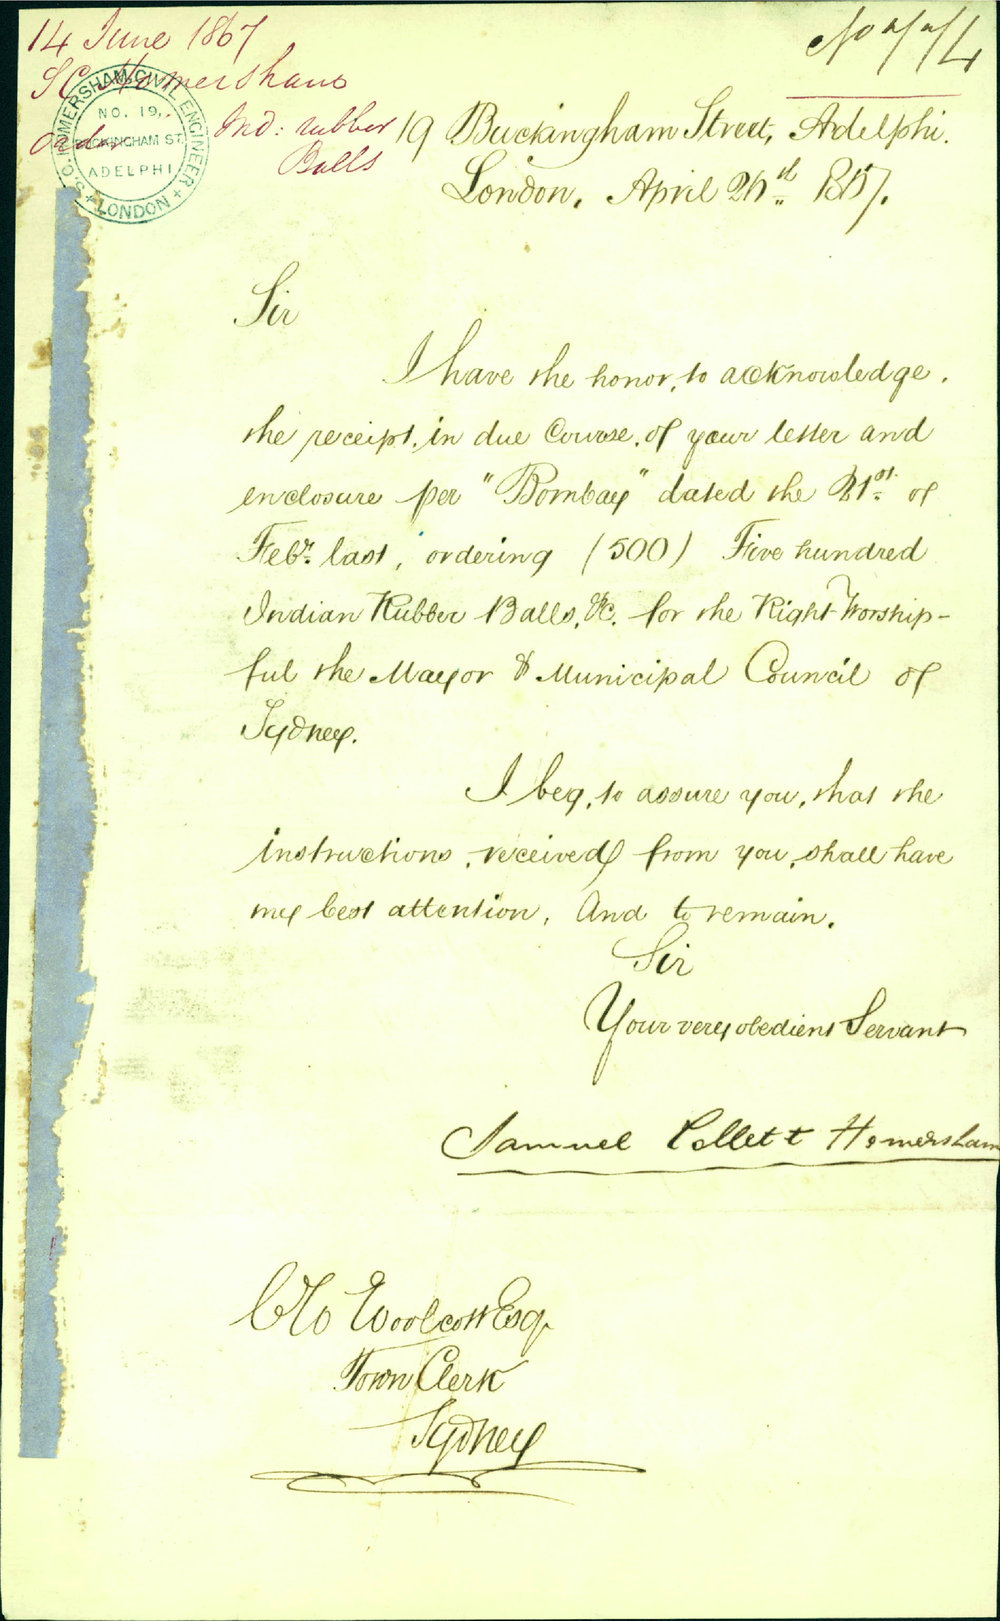 14 June 1867
S C Homersham
Ord.
Ind: rubber
Balls
S.C. HOMERSHAM, CIVIL ENGINEER
NO. 19,
BUCKINGHAM ST.
ADELPHI
LONDON
19 Buckingham Street, Adelphi.
London, April 26th 1867.
Sir
I have the honor, to acknowledge.
the receipt, in due Course, of your letter and
enclosure per "Bombay" dated the 21st of
Feby. last, ordering (500) Five hundred
Indian Rubber Balls, &c. for the Right Worship-
ful the Mayor & Municipal Council of
Sydney.
I beg, to assure you, that the
instructions, received from you, shall have
my best attention, And to remain.
Sir
Your very obedient Servant
Samuel Collett Homersham
Woolcott Esqr
Town Clerk
Sydney